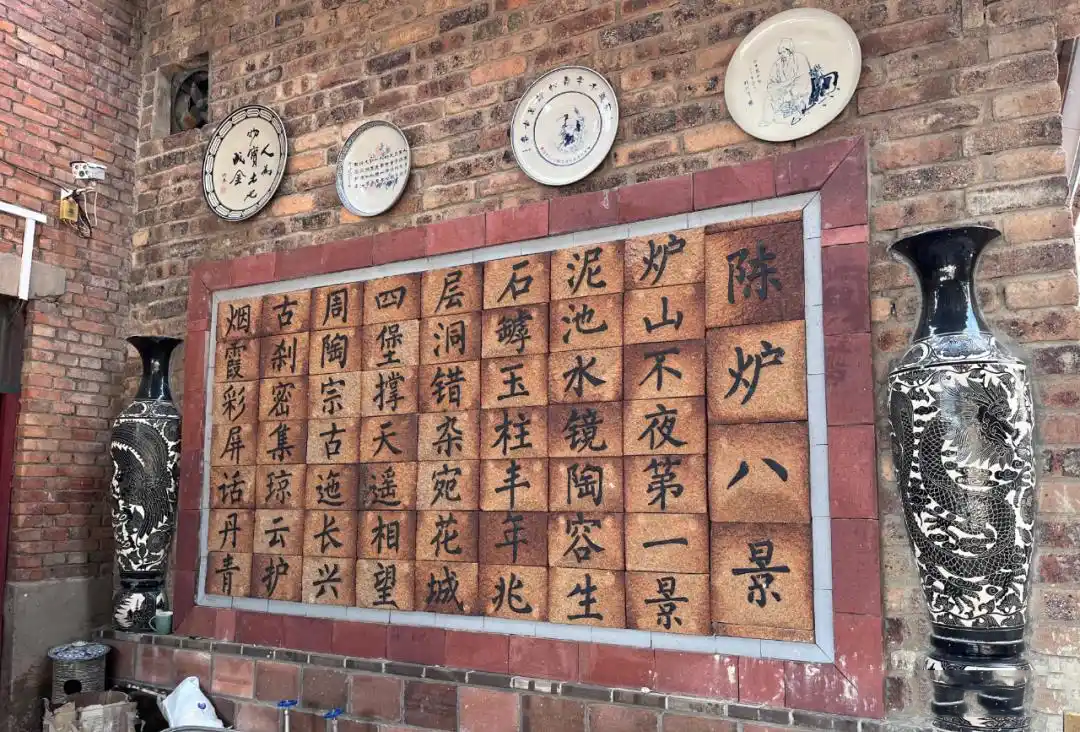 陈炉八景
炉山不夜第一景
泥池水镜陶容生
石罅玉柱丰年兆
层洞错杂宛花城
四堡撑天遥相望
周陶宗古迤长兴
古刹密集琼云护
烟霞彩屏话丹青
成金